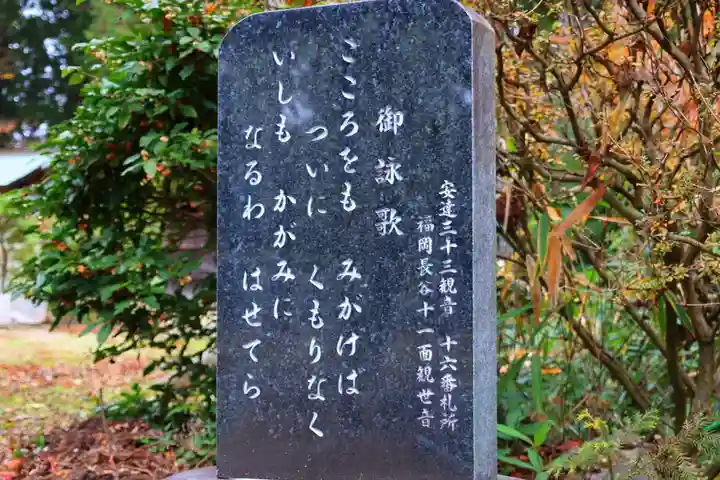 安達三十三観音 十六番札所
福岡長谷十一面観世音
御詠歌
こころをも みがけば
ついに くもりなく
いしも かがみに
なるわ はせてら